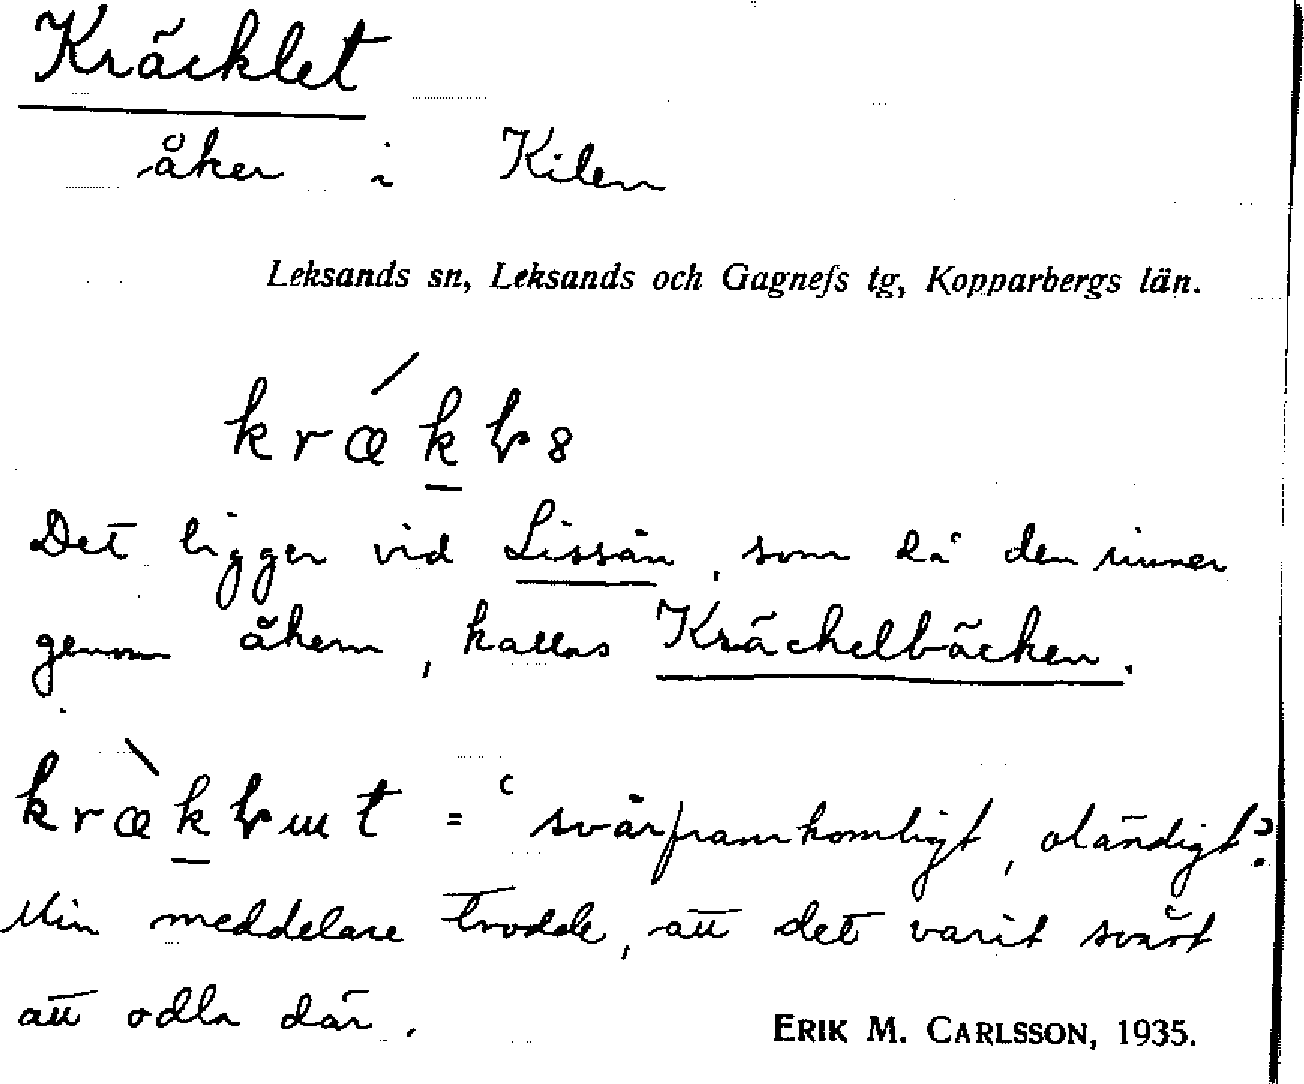 Kräcklet
åker i Kilen
Leksands sn, Leksands och Gagnefs tg, Kopparbergs län.
Det ligger vid Lissån, som då den rinner
genom åkern, kallas Kräckelbäcken.
= ‘svårframkomligt, oländigt’.
Min meddelare trodde, att det varit svårt
att odla där.
ERIK M. CARLSSON, 1935.